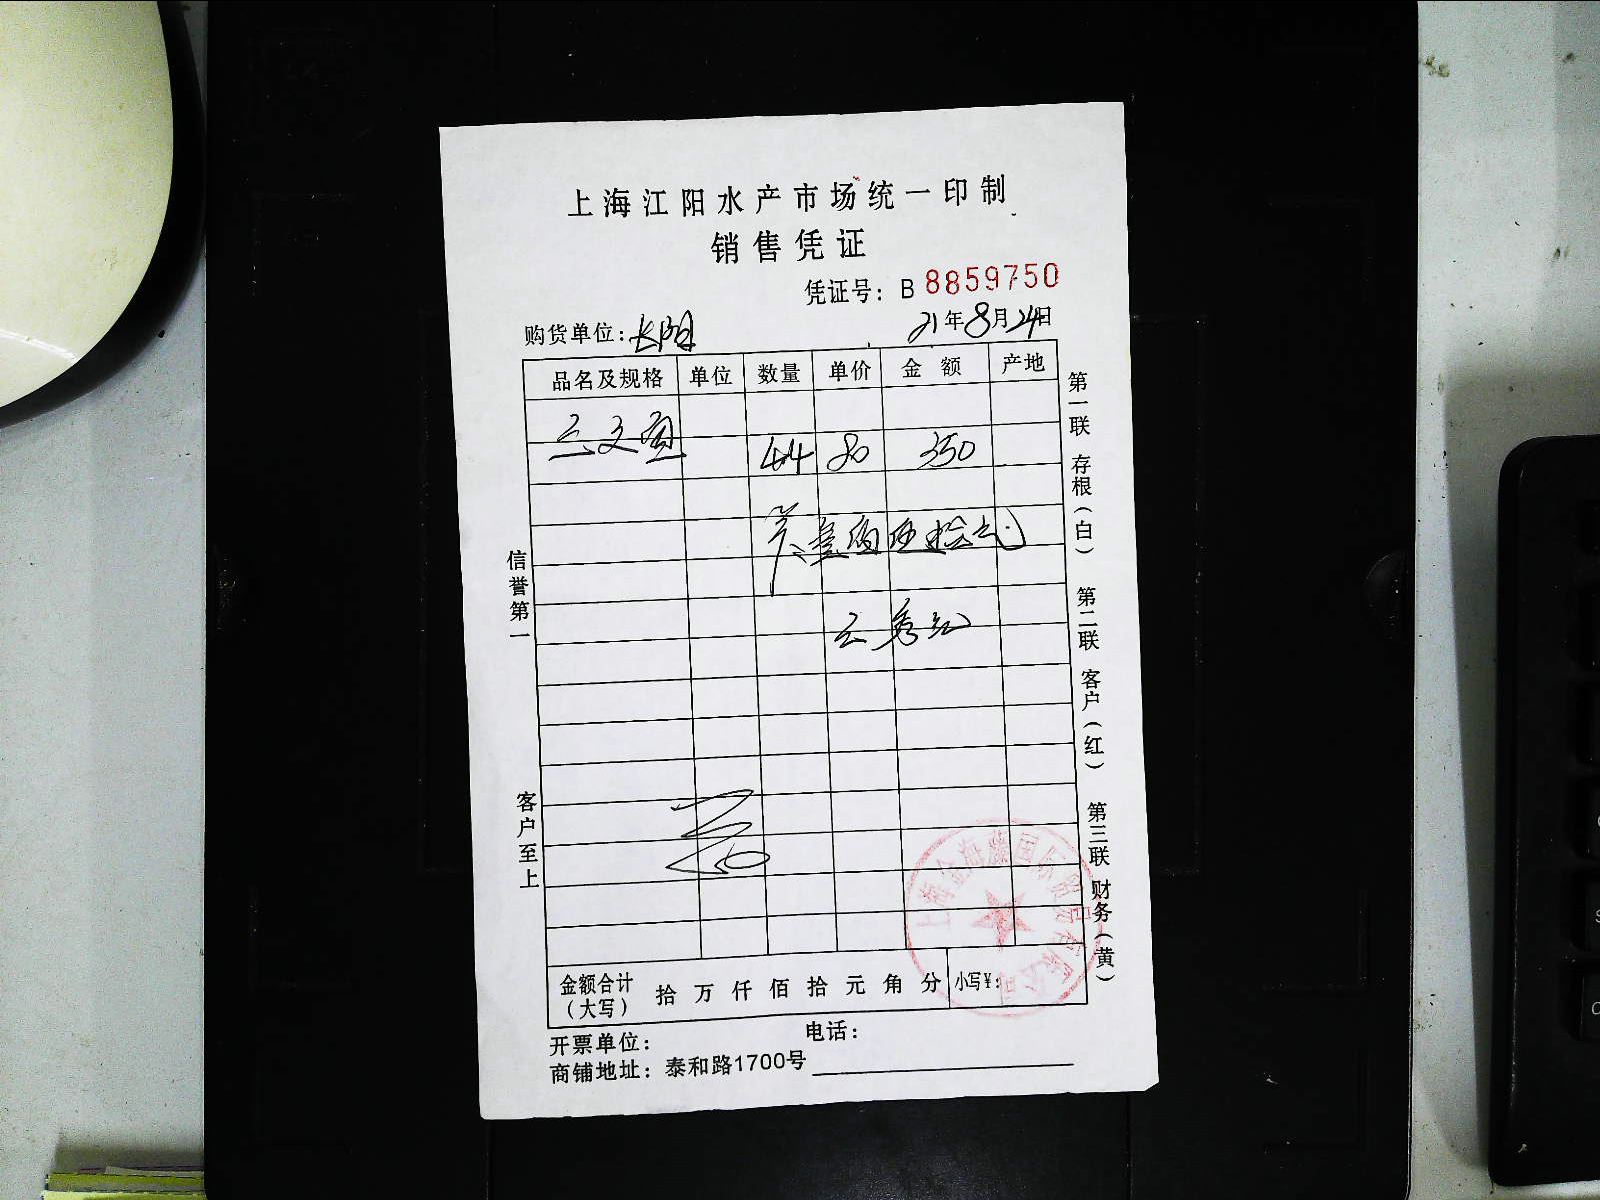 上海江阳水产市场统一印制
销售凭证
凭证号：B 8859750
购货单位：长阳 21年8月24日
品名及规格 单位 数量 单价 金额 产地
三文鱼
44 80 350
共壹
信誉第一
客户至上
第一联 存根（白） 第二联 客户（红） 第三联 财务（黄）
上海金海 国际贸易有限公司
金额合计（大写） 拾 万 仟 佰 拾 元 角 分 小写¥：
开票单位： 电话：
商铺地址：泰和路1700号